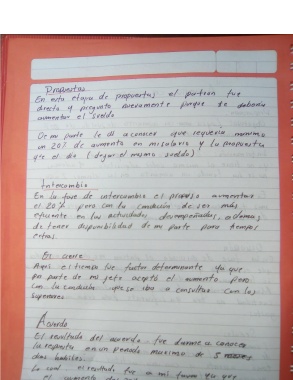 Propuestas
En esta etapa de propuestas el patron fue
directo y pregunto nuevamente porque se deberia
aumentar el sueldo
De mi parte le di a conocer que requeria minimo
un 20% de aumento en mi salario y la propuesta
que el dio (dejar el mismo sueldo)
Intercambio
En la fase de intercambio el propuso aumentar
el 20% pero con la condición de ser más
eficiente en las actividades desempeñadas, además
de tener disponibilidad de mi parte para tiempos
extras.
El cierre
Aqui el tiempo fue factor determinante ya que
por parte de mi jefe aceptó el aumento pero
con la condición que se iba a consultar con los
superiores
Acuerdo
El resultado del acuerdo fue darme a conocer
la respuesta en un periodo maximo de 3
dias habiles.
Lo cual el resultado fue a mi favor ya que
el aumento